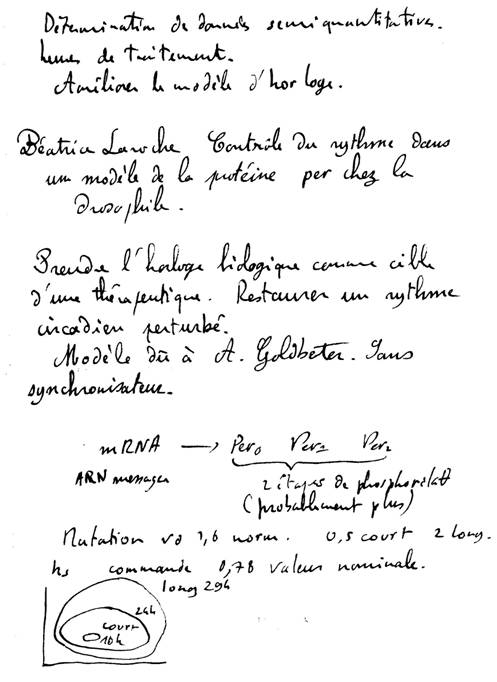 Détermination de données semiquantitatives.
heures de traitement.
Améliorer le modèle d'horloge.
Béatrice Laroche Contrôle du rythme dans
un modèle de la protéine per chez la
drosophile.
Prendre l'horloge biologique comme cible
d'une thérapeutique. Restaurer un rythme
circadien perturbé.
Modèle dû à A. Goldbeter. Sans
synchronisateur.
mRNA → Per0 Per1 Per2
ARN messager
2 étapes de phosphorylatt
(probablement plus)
Mutation vd 1,6 norm. 0,5 court 2 long.
ks commande 0,78 valeur nominale.
long 29h
24h
court
10h